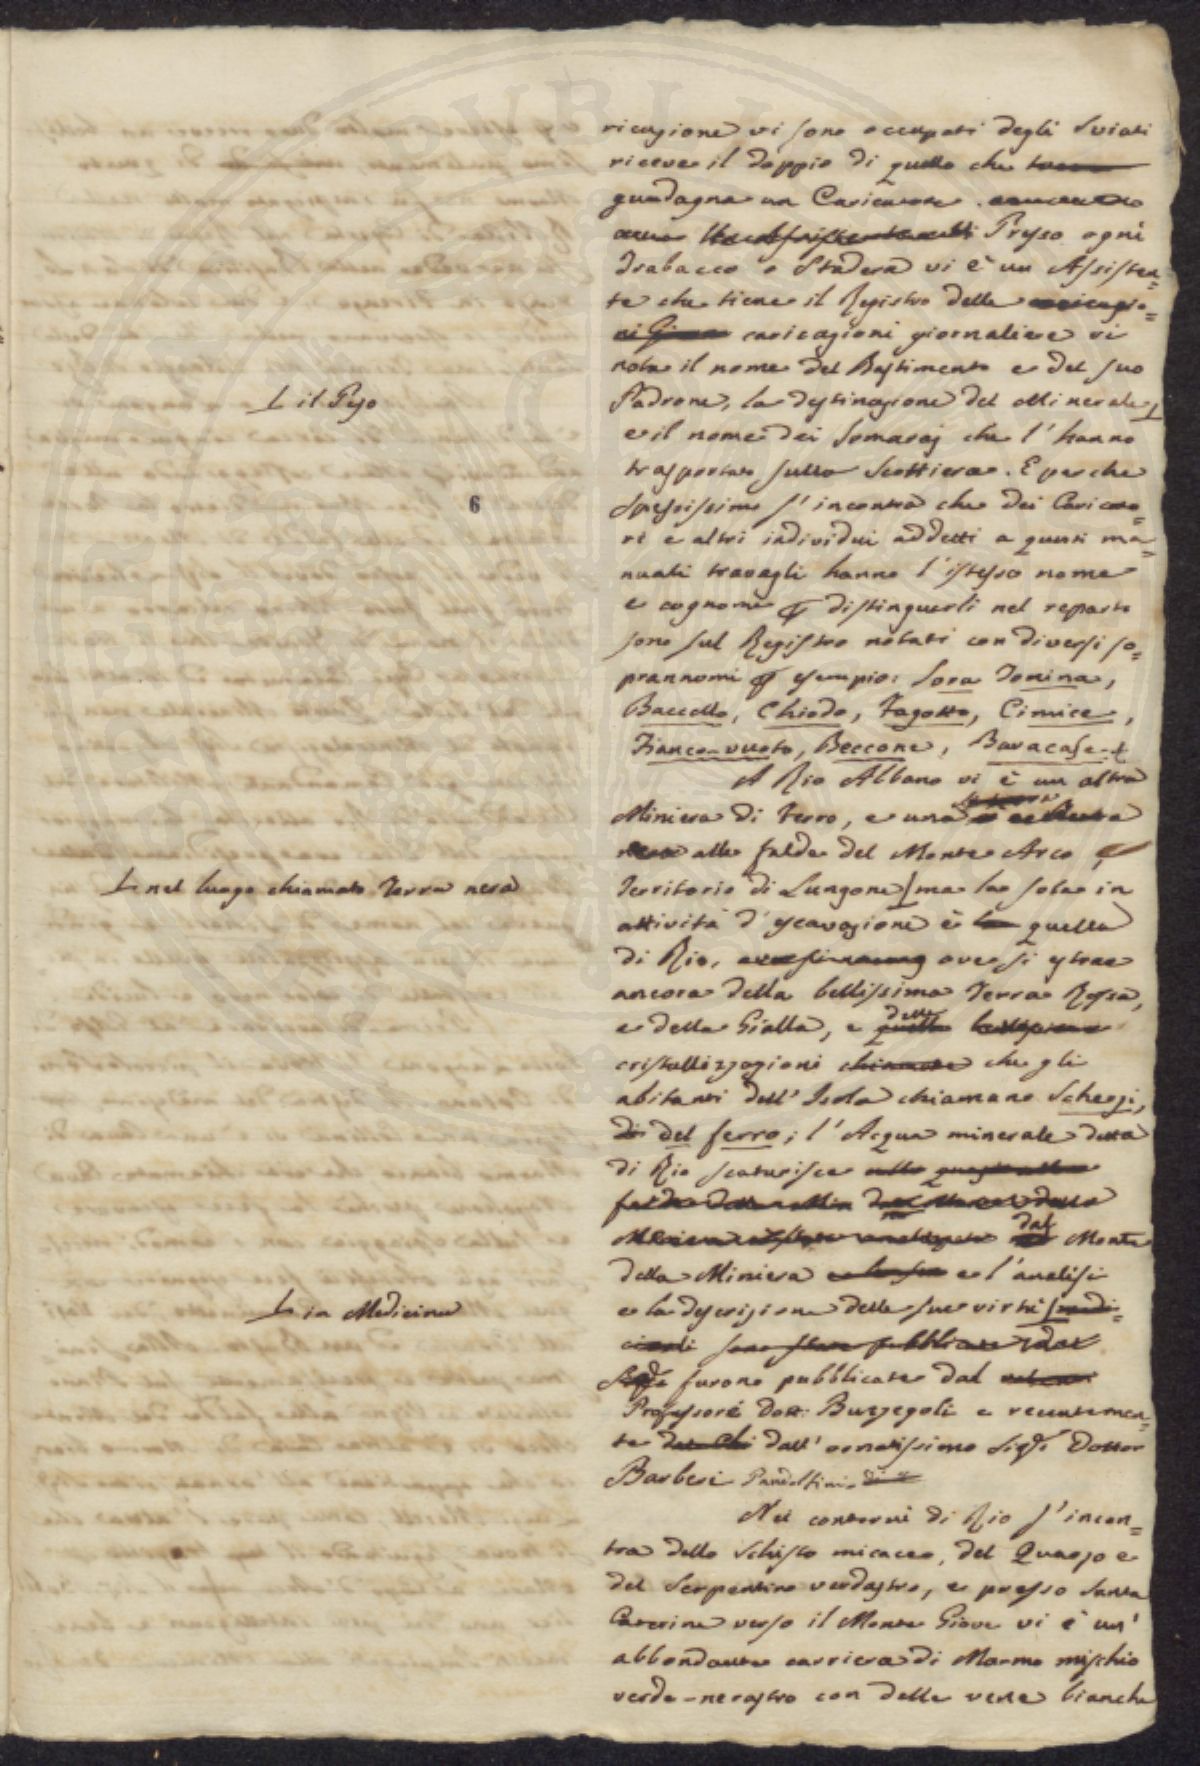 ricazione vi sono occupati degli Sviati
riceve il doppio di quello che
guadagna un Caricatore.
Presso ogni
Trabacco o Stadera vi è un Assisten=
te che tiene il Registro delle caricazio=
ni caricazioni giornaliere vi
nota il nome del Bastimento e del suo
Padrone, la destinazione del Minerale
il Peso
e il nome dei Somaraj che l'hanno
trasportato sullo Scottiera. E perche
6
spessissimo s'incontra che dei Caricato=
ri e altri individui addetti a questi ma=
nuali travagli hanno l'istesso nome
e cognome distinguerli nel reparto
sono sul Registro notati con diversi so=
prannomi esempio: Sora Tonina,
Baccello, Chiodo, Fagotto, Cimice,
Fianco-vuoto, Beccone, Bavacase
A Rio Albano vi è un altra
Miniera di Ferro, e una
alle falde del Monte Arco
nel luogo chiamato Terra nera
Territorio di Lungone ma la sola in
attività d'escavazione è la quella
di Rio, ove si estrae
ancora della bellissima Terra Rossa,
e della Gialla, e quelle delle
cristallizzazioni chiamate che gli
abitanti dell'Isola chiamano Scherzi,
di del ferro; l'Acqua minerale detta
di Rio scaturisce
falde della
dal Monte
della Miniera e l'analisi
e la descrizione delle sue virtù medi=
in Medicina
cinali sono state pubblicate
furono pubblicate dal
Professore Dott: Buzzegoli e recentemen=
te dall'ornatissimo Sigr Dottor
Barberi Pandolfini
Nei contorni di Rio s'incon=
tra dello Schisto micaceo, del Quarzo e
del Serpentino verdastro, e presso Santa
Caterina verso il Monte Giove vi è un'
abbondante carriera di Marmo mischio
verde-nerastro con delle vene bianche